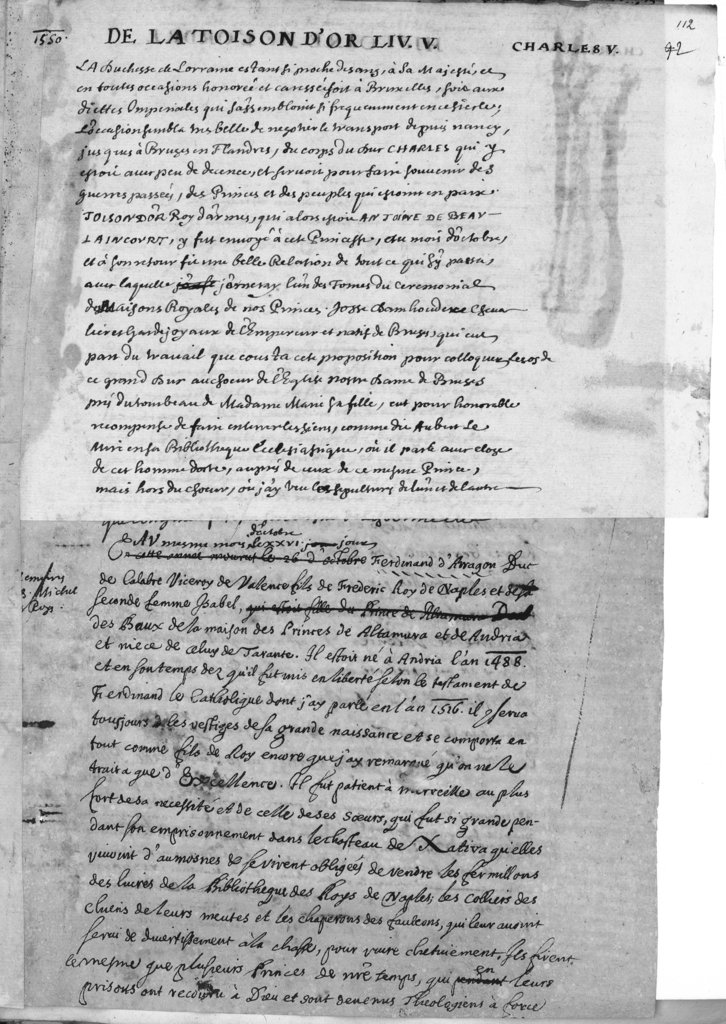 1550.
DE LA TOISON D'OR LIV. V.
CHARLES V.
112
92
LA Duchesse de Lorraine estant si proche de sang, à Sa Majesté, et
en toutes occasions honorée et caressée soit à Bruxelles, soit aux
diettes Imperiales qui s'assembloint si frequemment en ce siecle,
L'occasion sembla tres belle de negotier le transport depuis nancy,
jusques à Bruges en Flandres, du corps du Duc CHARLES qui y
estoit avec peu de decence, et servoit pour faire souvenir des
guerres passées, des Princes et des peuples qui estoint en paix.
TOISON D'OR Roy d'armes, qui alors estoit ANTOINE DE BEAV-
LAINCOURT, y fut envoyé à cete Princesse, et au mois d'octobre,
et à son retour fit une belle Relation de tout ce qui s'y passa,
avec laquelle j'orneray l'un des Tomes du Ceremonial
des Maisons Royales de nos Princes. Josse Damhoudere Cheva
lier et garde joyaux de l'Empereur et natif de Bruges, qui eut
part du travail que cousta cete proposition pour colloquer les os de
ce grand Duc au choeur de l'Eglise nostre Dame de Bruges
pres du tombeau de Madame Marie sa fille, eut pour honorable
recompense de faire enterrer les siens, comme dit Aubert Le
Mire en sa Bibliotheque Ecclesiastique, où il parle avec eloge
de cet homme docte, aupres de ceux de ce mesme Prince,
mais hors du choeur, où j'ay veu les sepultures de l'un et de l'autre
AV mesme mois d'octobre le XXVI. jour
cette année mourut le 26 d'octobre Ferdinand d'Aragon Duc
de Calabre Viceroy de Valence fils de Frederic Roy de Naples et de sa
seconde femme Isabel, qui estoit fille du Prince de Altamura Del
des Baux de la maison des Princes de Altamura et de Andria
et niece de celuy de Tarante. Il estoit né à Andria l'an 1488.
et en son temps dez qu'il fut mis en liberté selon le testament de
Ferdinand le Catholique dont j'ay parlé en l'an 1516. il conserva
tousjours les vestiges de sa grande naissance et se comporta en
tout comme fils de Roy encore que j'ay remarqué qu'on ne le
traita que d'Excellence. Il fut patient à merveille au plus
fort de sa necessité et de celle de ses soeurs, qui fut si grande pen-
dant son emprisonnement dans le chasteau de Xativa qu'elles
vivoint d'aumosnes & se virent obligées de vendre les fermillons
des livres de la Bibliotheque des Roys de Naples, les colliers des
chiens de leurs meutes et les chaperons des faulcons, qui leur avoint
servi de divertissement à la chasse, pour vivre chetivement. Ils firent
le mesme que plusieurs Princes de nre temps, qui pendant en leurs
prisons ont recouru à Dieu et sont devenus Theologiens à force